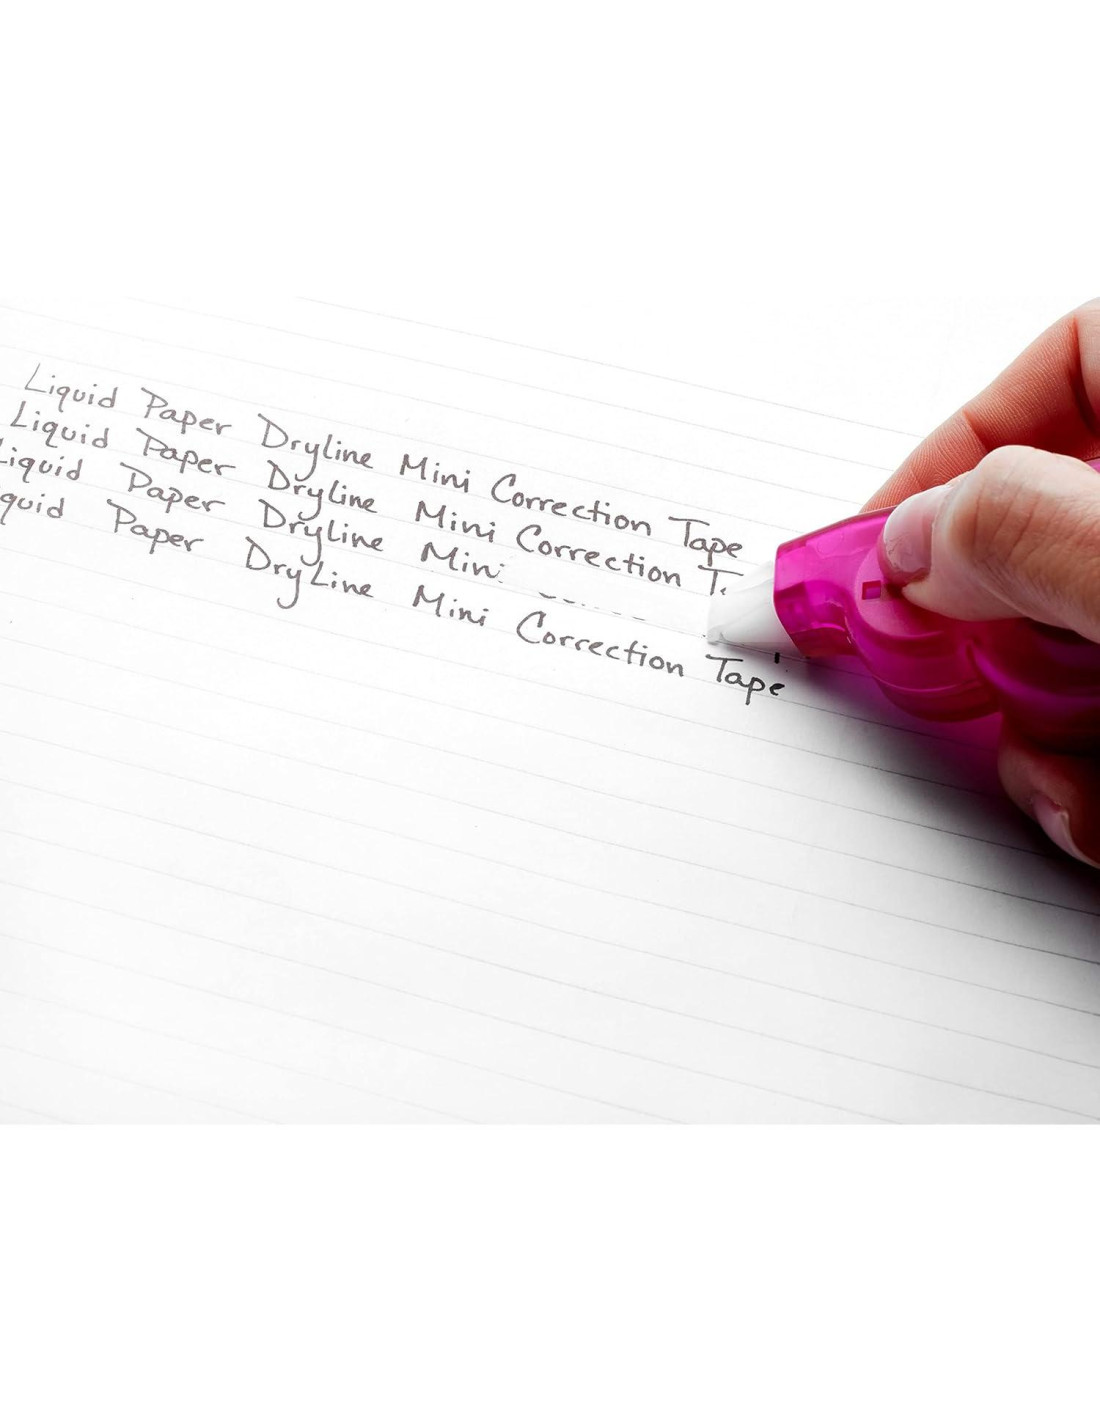 Liquid Paper Dryline Mini Correction Tape
Liquid Paper Dryline Mini Correction T
Liquid Paper Dryline Mini
quid Paper DryLine Mini Correction Tape